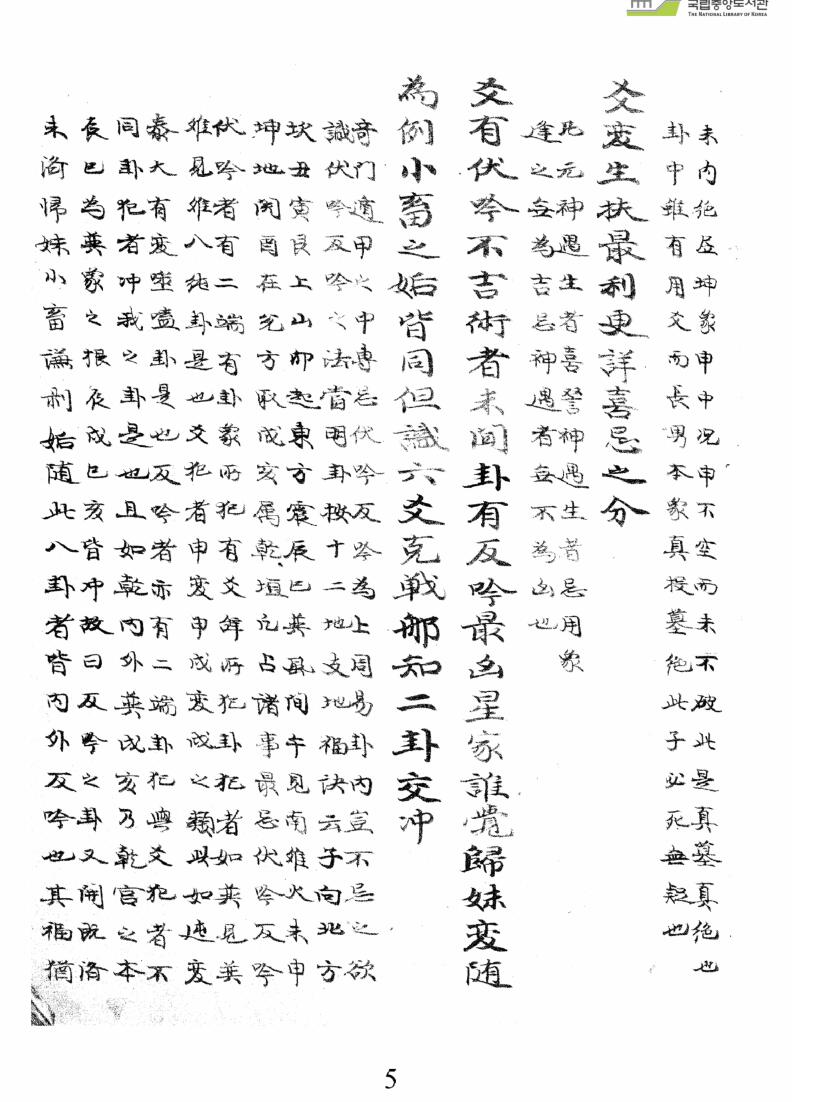 국립중앙도서관
THE NATIONAL LIBRARY OF KOREA
未内絶居坤象申中况申不空而未不破此是真墓真絶也
卦中雖有用爻而長男本象真投墓絶此子必死無疑也
爻変生扶最利更詳喜忌之分
凡元神遇生者喜讐神遇生者忌用象
逢之無為吉忌神遇者無不為凶也
爻有伏吟不吉術者未闻卦有反吟最凶星家誰覺歸妹变随
為例小畜之姤皆同但識六爻克戦那知二卦交冲
奇門遁甲之中専忌伏吟反吟為上周易卦内豈不忌之欲
識伏吟反吟之法當明卦按十二地支地福訣云子向北方
坎丑寅艮上山卯起東方震辰巳巽風间午見南離火未申
坤地闲酉在兌方取戌亥属乾垣凢占諸事最忌伏吟反吟
伏吟者有二端有卦象所犯有爻辞所犯卦犯者如巽見巽
雖見雖八純卦是也爻犯者申変申戌変戌之類此如遁変
泰大有変噬嗑卦是也反吟者亦有二端卦犯與爻犯者不
同卦犯者冲我之卦是也且如乾内外巽戌亥乃乾宫之本
辰巳為巽象之根辰戌巳亥皆冲故曰反吟之卦又開既济
未济帰妹小畜謙剥姤随此八卦者皆内外反吟也其福猶
5